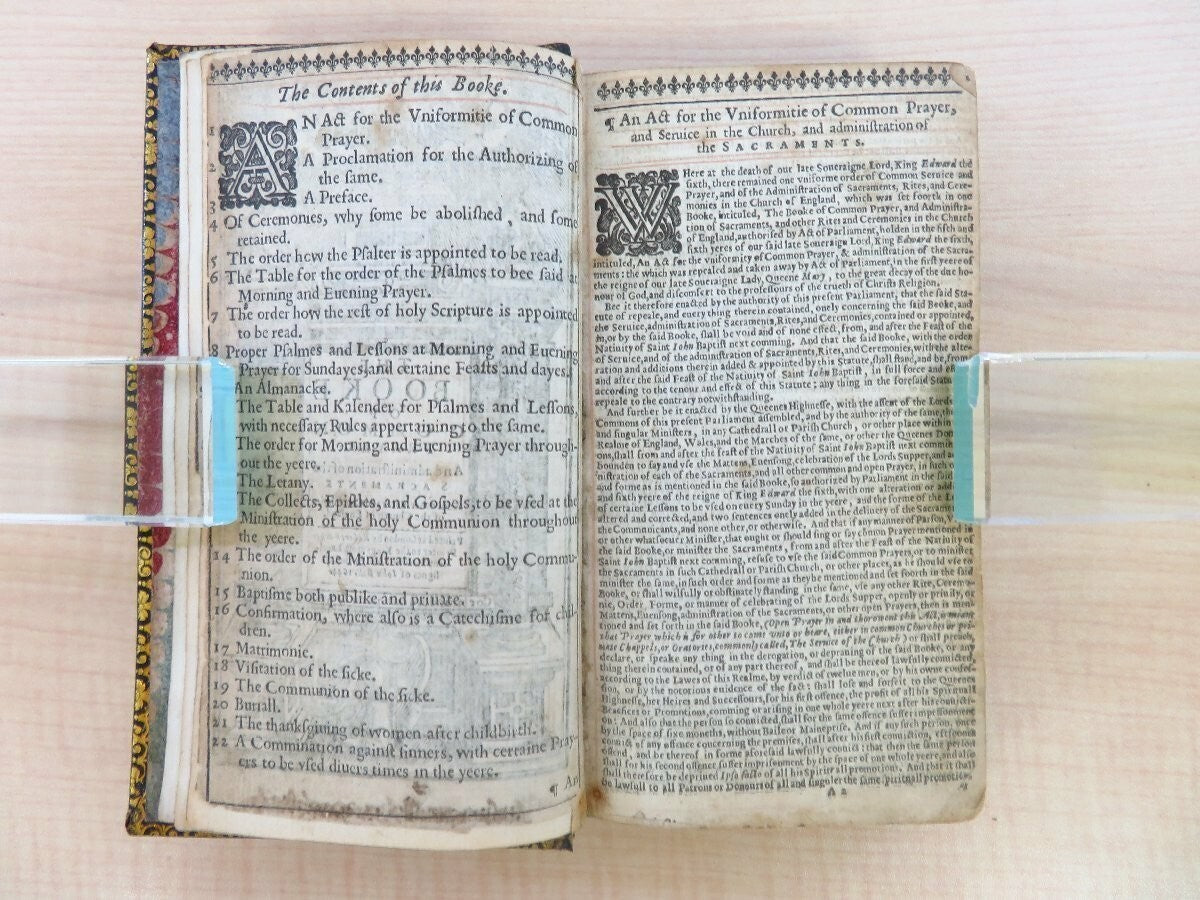 The Contents of this Booke.
1 AN Act for the Vniformitie of Common
Prayer.
2 A Proclamation for the Authorizing of
the same.
3 A Preface.
4 Of Ceremonies, why some be abolished, and some
retained.
5 The order how the Psalter is appointed to be read.
6 The Table for the order of the Psalmes to bee said at
Morning and Euening Prayer.
7 The order how the rest of holy Scripture is appointed
to be read.
8 Proper Psalmes and Lessons at Morning and Euening
Prayer for Sundayes, and certaine Feasts and dayes.
An Almanacke.
The Table and Kalender for Psalmes and Lessons,
with necessary Rules appertaining to the same.
The order for Morning and Euening Prayer through-
out the yeere.
The Letany.
The Collects, Epistles, and Gospels, to be vsed at the
Ministration of the holy Communion throughout
the yeere.
14 The order of the Ministration of the holy Commu-
nion.
15 Baptisme both publike and priuate.
16 Confirmation, where also is a Catechisme for chil-
dren.
17 Matrimonie.
18 Visitation of the sicke.
19 The Communion of the sicke.
20 Buriall.
21 The thanksgiuing of women after childbirth.
22 A Commination against sinners, with certaine Pray-
ers to be vsed diuers times in the yeere.
¶ An
¶ An Act for the Vniformitie of Common Prayer,
and Seruice in the Church, and administration of
the SACRAMENTS.
WHere at the death of our late Soueraigne Lord, King Edward the
sixth, there remained one vniforme order of Common Seruice and
Prayer, and of the Administration of Sacraments, Rites, and Cere-
monies in the Church of England, which was set foorth in one
Booke, intituled, The Booke of Common Prayer, and Administra-
tion of Sacraments, and other Rites and Ceremonies in the Church
of England, authorised by Act of Parliament, holden in the fifth and
sixth yeres of our said late Soueraign Lord, King Edward the sixth,
intituled, An Act for the vniformity of Common Prayer, & administration of the Sacra-
ments: the which was repealed and taken away by Act of Parliament, in the first yeere of
the reigne of our late Soueraigne Lady, Queene Mary, to the great decay of the due ho-
nour of God, and discomfort to the professours of the trueth of Christs Religion.
Bee it therefore enacted by the authority of this present Parliament, that the said Sta-
tute of repeale, and euery thing therein contained, onely concerning the said Booke, and
the Seruice, administration of Sacraments, Rites, and Ceremonies, contained or appointed,
in, or by the said Booke, shall be void and of none effect, from, and after the Feast of the
Natiuity of Saint Iohn Baptist next comming. And that the said Booke, with the order
of Seruice, and of the administration of Sacraments, Rites, and Ceremonies, with the alte-
ration and additions therein added & appointed by this Statute, shall stand, and be, from
and after the said Feast of the Natiuity of Saint Iohn Baptist, in full force and effect,
according to the tenour and effect of this Statute; any thing in the foresaid Statute of
repeale to the contrary notwithstanding.
And further be it enacted by the Queenes Highnesse, with the assent of the Lords
Commons of this present Parliament assembled, and by the authority of the same, that
and singular Ministers, in any Cathedrall or Parish Church, or other place within
Realme of England, Wales, and the Marches of the same, or other the Queenes Domi
ons, shall from and after the feast of the Natiuity of Saint Iohn Baptist next comming
bounden to say and vse the Mattens, Euensong, celebration of the Lords Supper, and ad
nistration of each of the Sacraments, and all other common and open Prayer, in such
and forme as is mentioned in the said Booke, so authorized by Parliament in the said
and sixth yeere of the reigne of King Edward the sixth, with one alteration or addi
of certaine Lessons to be vsed on euery Sunday in the yeere, and the forme of the
altered and corrected, and two sentences only added in the deliuery of the Sacrament
the Communicants, and none other, or otherwise. And that if any manner of Parson,
or other whatsoeuer Minister, that ought or should sing or say common Prayer mentioned in
the said Booke, or minister the Sacraments, from and after the Feast of the Natiuity of
Saint Iohn Baptist next comming, refuse to vse the said Common Prayers, or to minister
the Sacraments in such Cathedrall or Parish Church, or other places, as he should vse to
minister the same, in such order and forme as they be mentioned and set foorth in the said
Booke, or shall wilfully or obstinately standing in the same, vse any other Rite, Ceremo-
nie, Order, Forme, or manner of celebrating of the Lords Supper, openly or priuily, or
Mattens, Euensong, administration of the Sacraments, or other open Prayers, then is men-
tioned and set forth in the said Booke, (Open Prayer in and thorowout this Act, is meant
that Prayer which is for other to come vnto or heare, either in common Churches or pri-
uate Chappels, or Oratories, commonly called, The Seruice of the Church) or shall preach,
declare, or speake any thing in the derogation, or deprauing of the said Booke, or any
thing therein contained, or of any part thereof, and shall be thereof lawfully conuicted,
according to the Lawes of this Realme, by verdict of twelue men, or by his owne confes-
sion, or by the notorious euidence of the fact: shall lose and forfeit to the Queenes
Highnesse, her Heires and Successours, for his first offence, the profit of all his Spirituall
Benefices or Promotions, comming or arising in one whole yeere next after his conuicti-
on: And also that the person so conuicted, shall for the same offence suffer imprisonment
by the space of sixe moneths, without Baile or Maineprise. And if any such person, once
conuict of any offence concerning the premisses, shall after his first conuiction, eftsoones
offend, and be thereof in forme aforesaid lawfully conuict: that then the same person
shall for his second offence suffer imprisonment by the space of one whole yeere, and also
shall therefore be depriued Ipso facto of all his Spirituall promotions. And that it shall
be lawfull to all Patrons or Donours of all and singuler the same spirituall promotions,
A 2